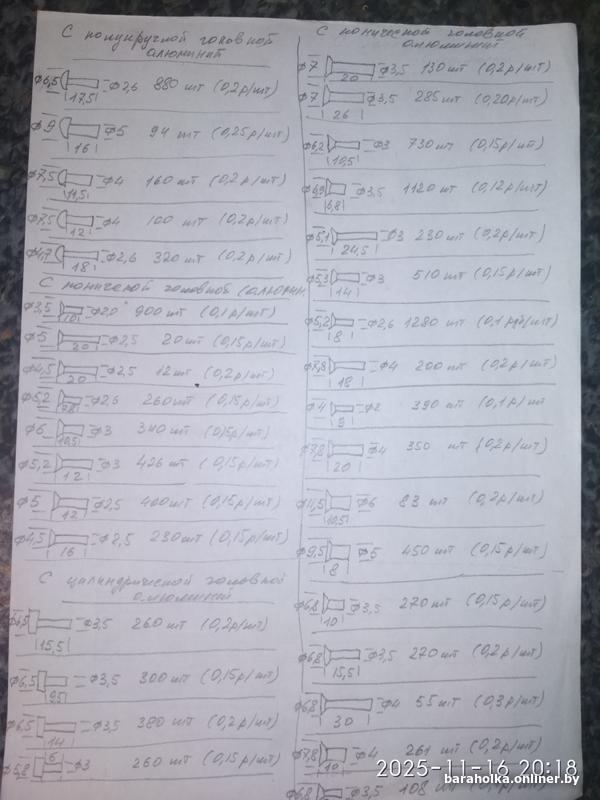 С полукруглой головкой
алюминий
Ф6,5 Ф2,6 880 шт (0,2р/шт)
17,5
Ф9 Ф5 94 шт (0,25р/шт)
16
Ф7,5 Ф4 160 шт (0,2р/шт)
11,5
Ф7,5 Ф4 100 шт (0,2р/шт)
12
Ф4,7 Ф2,6 320 шт (0,2р/шт)
18
С конической головкой (алюмин.
Ф3,5 Ф2,0 900 шт (0,1р/шт)
10
Ф5 Ф2,5 20 шт (0,15р/шт)
20
Ф4,5 Ф2,5 12 шт (0,2р/шт)
20
Ф5,2 Ф2,6 260 шт (0,15р/шт)
Ф6 Ф3 340 шт (0,15р/шт)
10,5
Ф5,2 Ф3 426 шт (0,15р/шт)
12
Ф5 Ф2,5 400 шт (0,15р/шт)
12
Ф4,5 Ф2,5 230 шт (0,15р/шт)
16
С цилиндрической головкой
алюминий
Ф6,5 Ф3,5 260 шт (0,2р/шт)
15,5
Ф6,5 Ф3,5 300 шт (0,15р/шт)
9,5
Ф6,5 Ф3,5 380 шт (0,2р/шт)
14
6
Ф5,8 Ф3 260 шт (0,15р/шт)
С конической головкой
алюминий
Ф7 Ф3,5 130 шт (0,2р/шт)
20
Ф7 Ф3,5 285 шт (0,20р/шт)
26
Ф6,2 Ф3 730 шт (0,15р/шт)
10,5
Ф6,9 Ф3,5 1120 шт (0,12р/шт)
6,8
Ф5,1 Ф3 230 шт (0,2р/шт)
24,5
Ф5,3 Ф3 510 шт (0,15р/шт)
14
Ф5,2 Ф2,6 1280 шт (0,1 руб/шт)
8
Ф7,8 Ф4 200 шт (0,2р/шт)
18
Ф4 Ф2 390 шт (0,1р/шт
Ф7,8 Ф4 350 шт (0,2р/шт)
20
Ф11,5 Ф6 83 шт (0,2р/шт)
10,5
Ф9,5 Ф5 450 шт (0,15р/шт)
8
Ф6,8 Ф3,5 270 шт (0,15р/шт)
10
Ф6,8 Ф3,5 270 шт (0,2р/шт)
15,5
Ф6,8 Ф4 55 шт (0,3р/шт)
30
Ф7,8 Ф4 261 шт (0,2р/шт)
10
Ф6,8 Ф3,5 108 шт
2025-11-16 20:18
baraholka.onliner.by